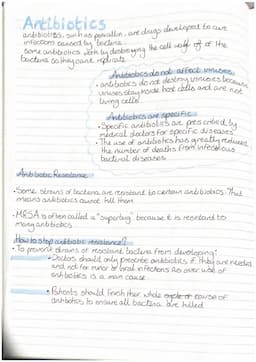 Antibiotics
antibiotics, such as penicillin, are drugs developed to cure
infections caused by bacteria
some antibiotics work by destroying the cell wall of of the
bacteria so they cant replicate
Antibiotics do not affect viruses.
• antibiotics do not destroy viruses because
viruses stay inside host cells and are not
living cells!
Antibiotics are specific
• Specific antibiotics are prescribed by
medical doctors for specific diseases
• The use of antibiotics has greatly reduced
the number of deaths from infectious
bacterial diseases
Antibiotic Resistance
• Some strains of bacteria are resistant to certain antibiotics. That
means antibiotics cannot kill them
• MRSA is often called a "superbug" because it is resistant to
many antibiotics
How to stop antibiotic resistance?
• To prevent strains of resistant bacteria from developing:
• Doctors should only prescribe antibiotics if they are needed
and not for minor or viral infections as over use of
antibiotics is a main cause
• Patients should finish their whole course of
antibiotics to ensure all bacteria are killed